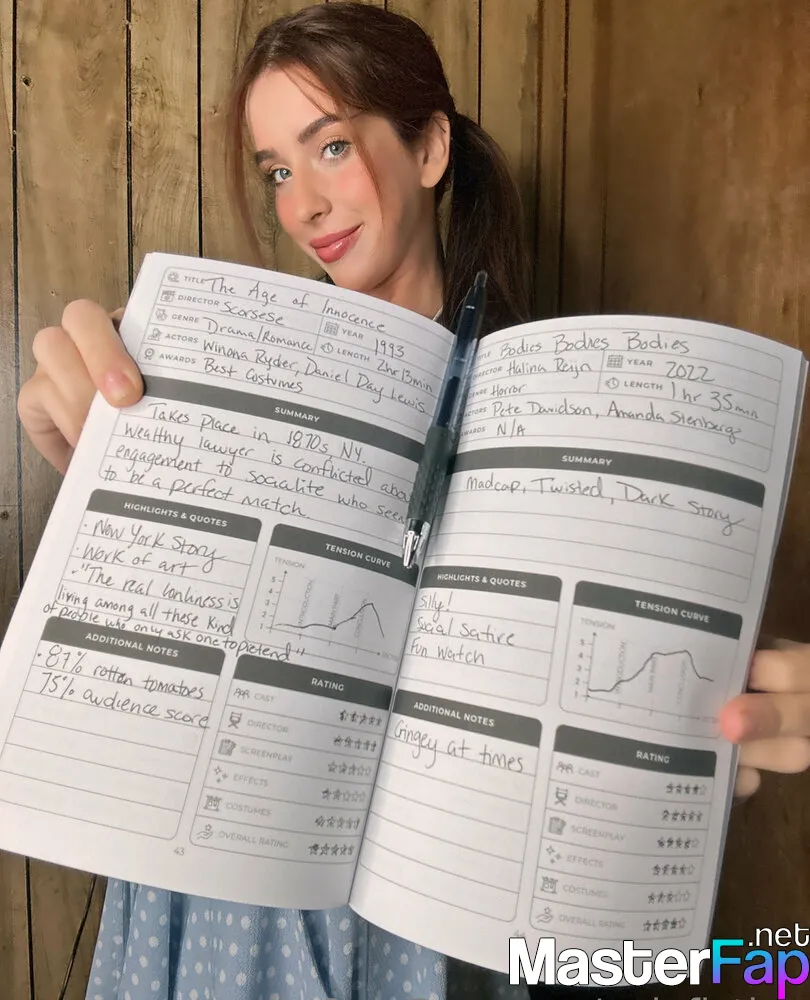 TITLE The Age of Innocence
DIRECTOR Scorsese
YEAR 1993
GENRE Drama/Romance
LENGTH 2hr 13min
ACTORS Winona Ryder, Daniel Day Lewis
AWARDS Best Costumes
SUMMARY
Takes place in 1870s, NY.
Wealthy lawyer is conflicted abou
engagement to socialite who seem
to be a perfect match.
HIGHLIGHTS & QUOTES
· New York Story
· Work of art
· "The real lonliness is
living among all these kind
of people who only ask one to pretend"
TENSION CURVE
TENSION
5
4
3
2
1
INTRODUCTION
MAIN PART
CONCLUSION
ADDITIONAL NOTES
· 87% rotten tomatoes
75% audience score
RATING
CAST
DIRECTOR
SCREENPLAY
EFFECTS
COSTUMES
OVERALL RATING
43
TITLE Bodies Bodies Bodies
DIRECTOR Halina Reijn
YEAR 2022
GENRE Horror
LENGTH 1 hr 35 min
ACTORS Pete Davidson, Amanda Stenberg
AWARDS N/A
SUMMARY
Madcap, Twisted, Dark Story
HIGHLIGHTS & QUOTES
Silly!
Social Satire
Fun Watch
TENSION CURVE
TENSION
5
4
3
2
1
INTRODUCTION
MAIN PART
CONCLUSION
ADDITIONAL NOTES
Cringey at times
RATING
CAST
DIRECTOR
SCREENPLAY
EFFECTS
COSTUMES
OVERALL RATING
MasterFap.net